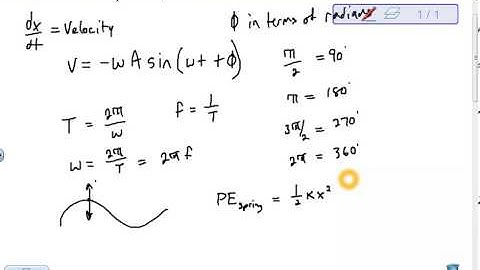 dx/dt = velocity
φ in terms of radians
1 / 1
V = -ωA sin(ωt + φ)
π/2 = 90°
T = 2π/ω
f = 1/T
π = 180°
3π/2 = 270°
ω = 2π/T = 2πf
2π = 360°
PE spring = 1/2 Kx²